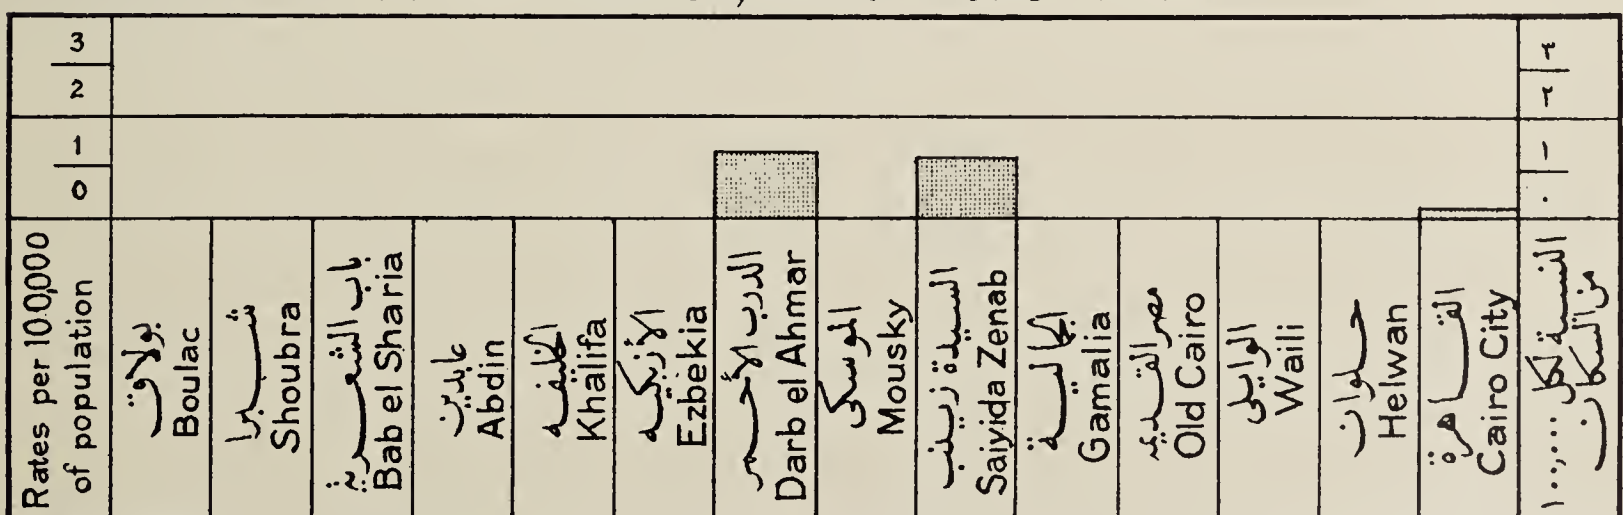 3
2
1
0
Rates per 100,000
of population
بولاق
Boulac
شبرا
Shoubra
باب الشعرية
Bab el Sharia
عابدين
Abdin
الخليفه
Khalifa
الأزبكيه
Ezbekia
الدرب الأحمر
Darb el Ahmar
الموسكى
Mousky
السيدة زينب
Saiyida Zenab
الجمالية
Gamalia
مصر القديمه
Old Cairo
الوايلى
Waili
حلوان
Helwan
القاهرة
Cairo City
٣
٢
١
٠
النسبة لكل ١٠٠,٠٠٠
من السكان